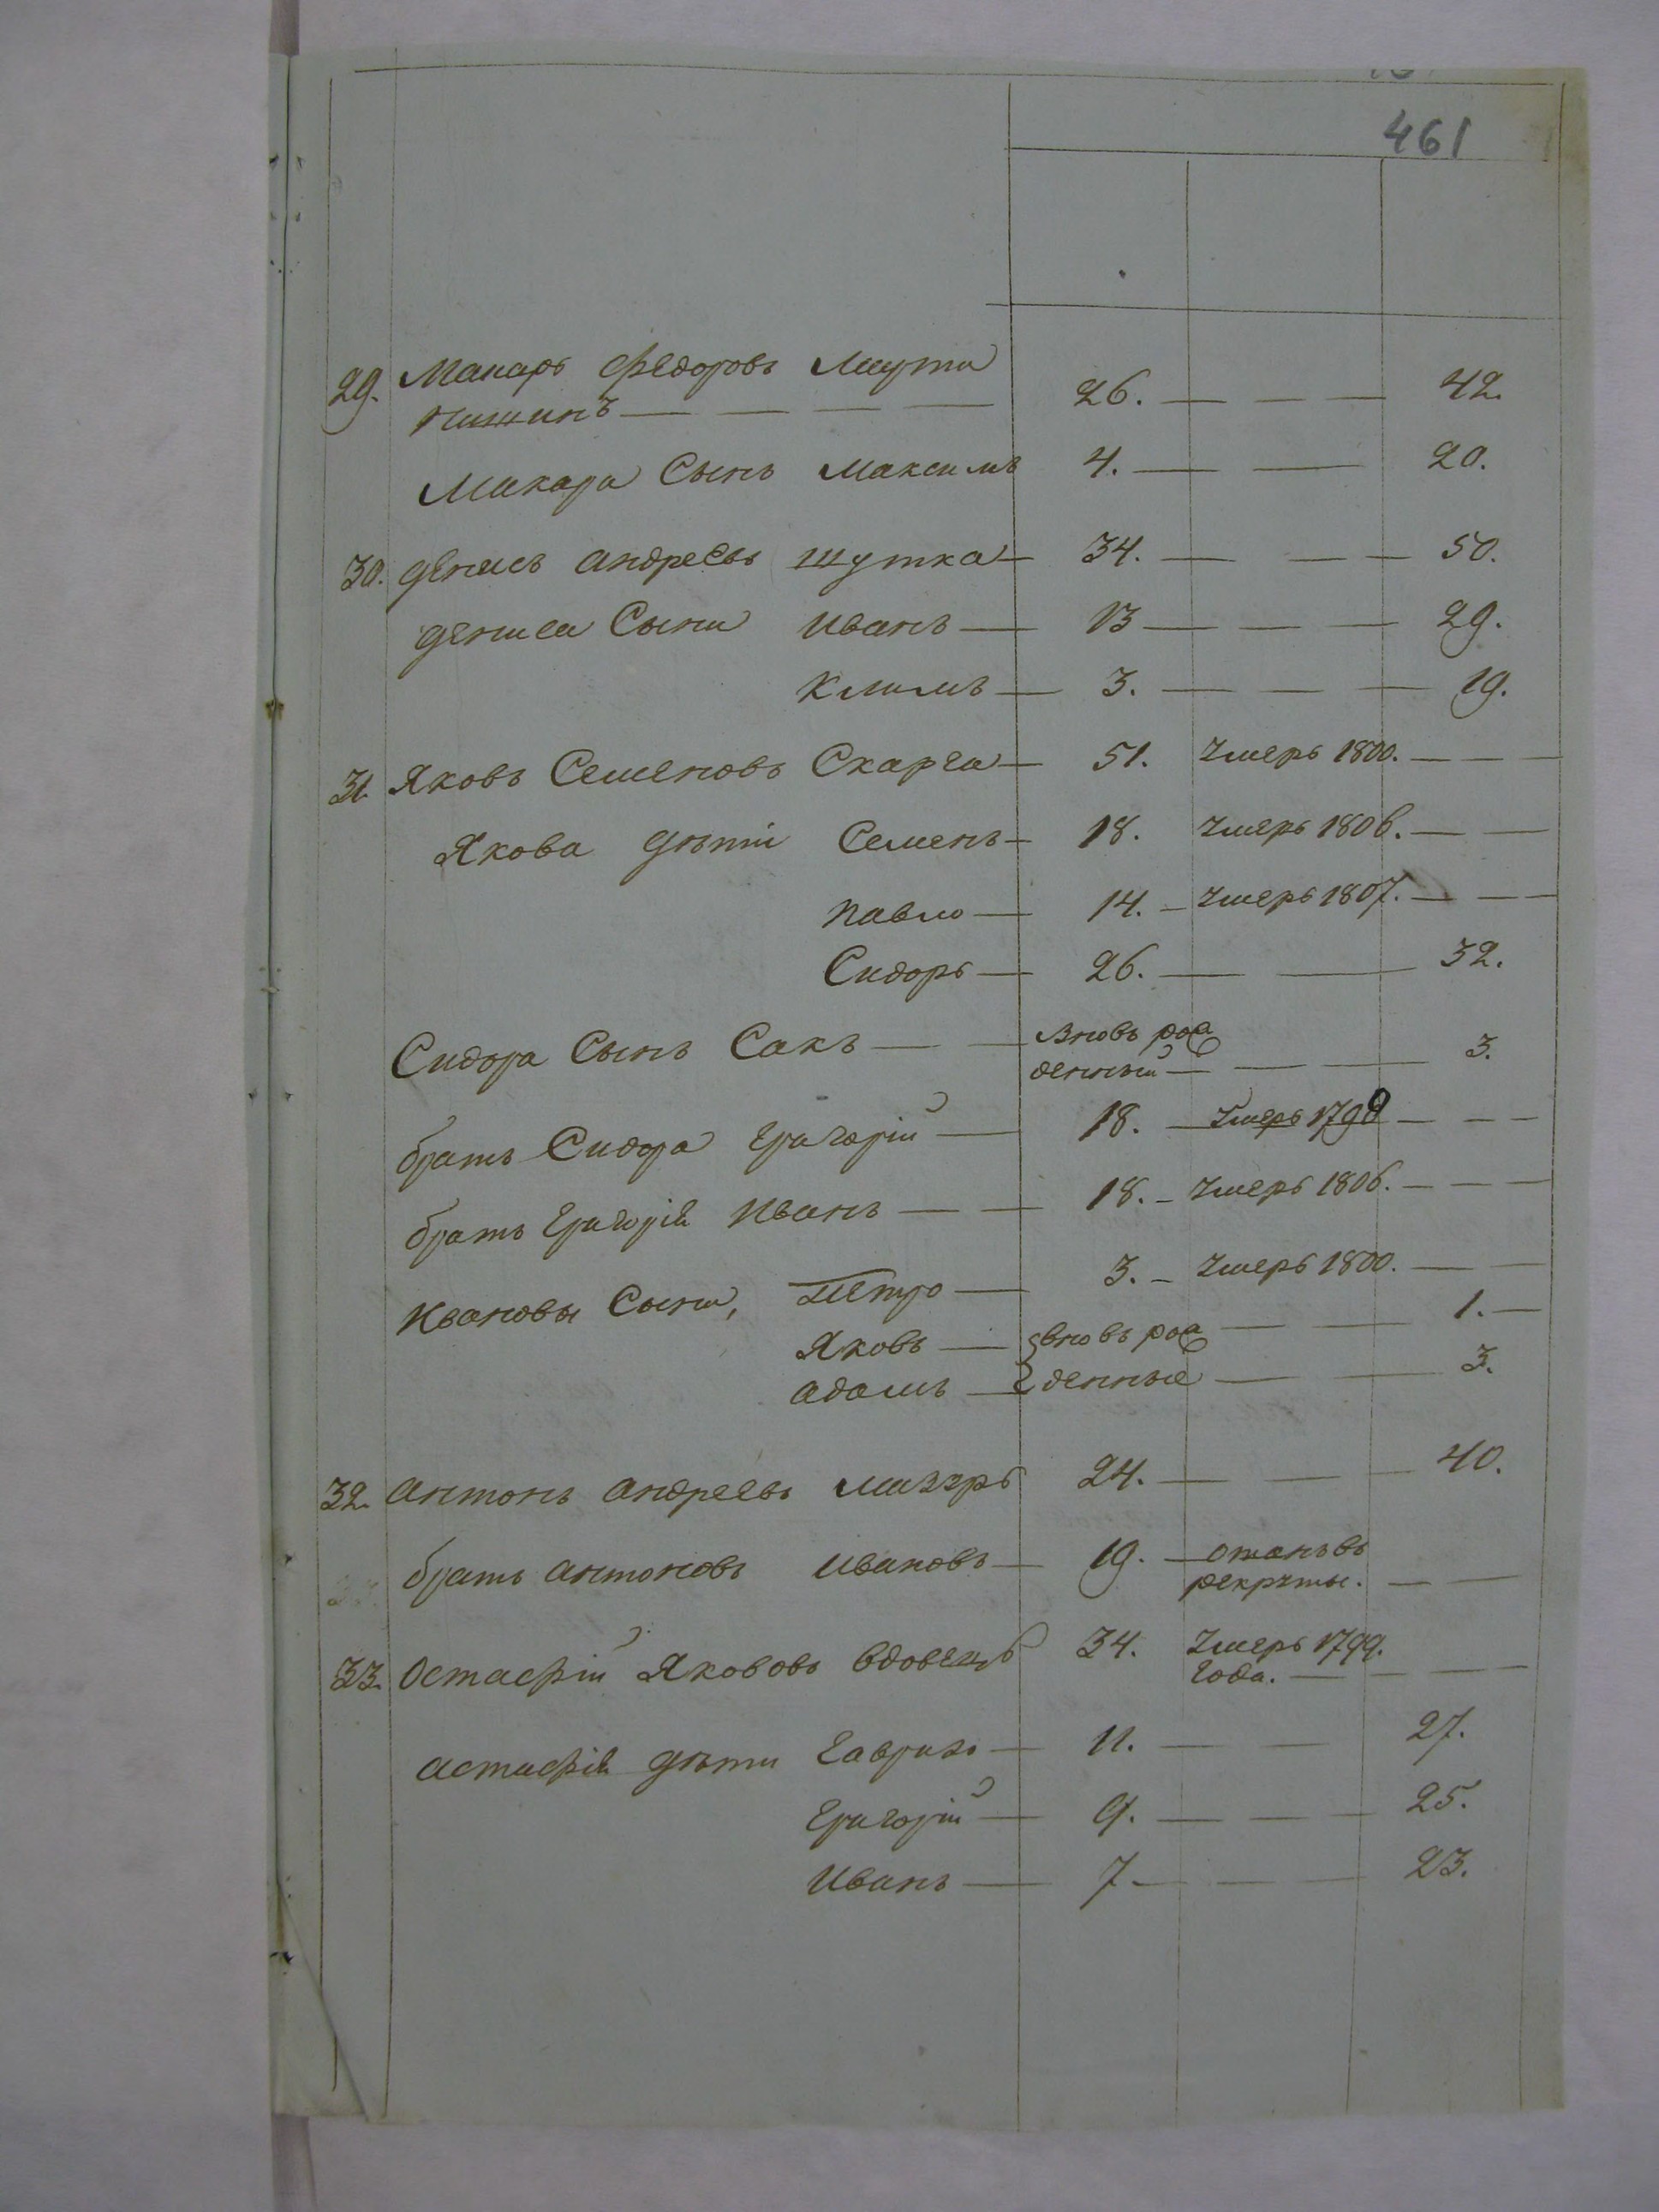 461
29. Макаръ Федоровъ
26. 42.
Макара Сынъ Максимъ 4. 20.
30. Денисъ Андреевъ Шутка 34. 50.
Дениса Сыни Иванъ 13 29.
Климъ 3. 19.
31. Яковъ Семеновъ Скарга 51. Умеръ 1800.
Якова дѣти Семенъ 18. Умеръ 1806.
Павло 14. Умеръ 1807.
Сидоръ 26. 32.
Сидора Сынъ Сакъ вновь рож
денный 3.
братъ Сидора Григорій 18. Умеръ 1798
братъ Григорія Иванъ 18. Умеръ 1806.
Ивановы Сыни, Петро 3. Умеръ 1800.
Яковъ вновь рож 1.
Адамъ денные 3.
32. Антонъ Андреевъ 24. 40.
братъ Антоновъ Ивановъ 19. отданъ въ
рекруты.
33. Остафій Якововъ Вдовецъ 34. Умеръ 1799.
года.
Астафія дѣти Гаврило 11. 27.
Григорій 9. 25.
Иванъ 7 23.